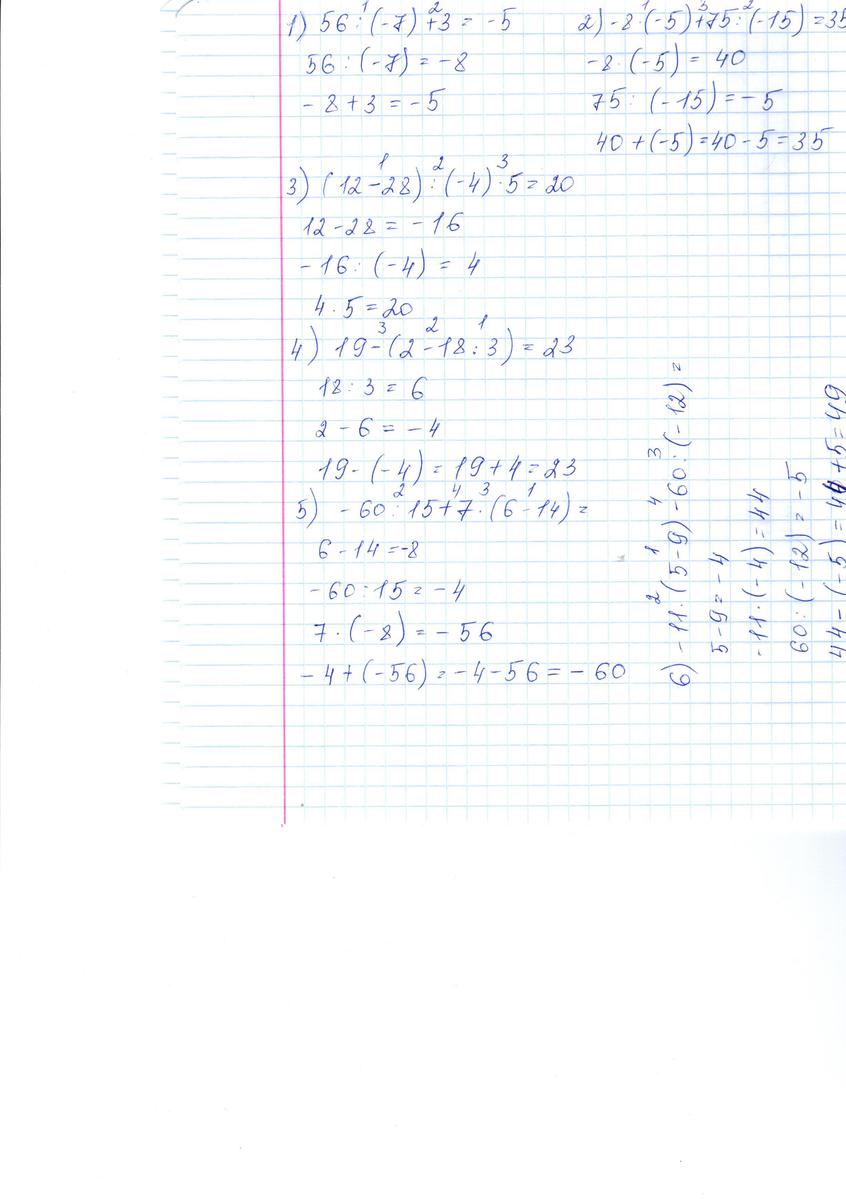 1) 56 : (-7) + 3 = -5
56 : (-7) = -8
- 8 + 3 = -5
2) -8 · (-5) + 75 : (-15) = 35
-8 · (-5) = 40
75 : (-15) = -5
40 + (-5) = 40 - 5 = 35
3) (12 - 28) : (-4) · 5 = 20
12 - 28 = -16
-16 : (-4) = 4
4 · 5 = 20
4) 19 - (2 - 18 : 3) = 23
18 : 3 = 6
2 - 6 = -4
19 - (-4) = 19 + 4 = 23
5) -60 : 15 + 7 · (6 - 14) =
6 - 14 = -8
-60 : 15 = -4
7 · (-8) = -56
-4 + (-56) = -4 - 56 = -60
6) -11 · (5 - 9) - 60 : (-12) =
5 - 9 = -4
-11 · (-4) = 44
60 : (-12) = -5
44 - (-5) = 44 + 5 = 49